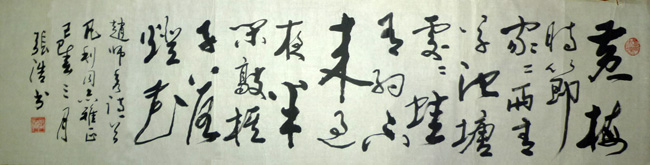 黄梅
時節
家々雨青
草池塘
處々蛙
有約不
来過
夜半
閑敲棋
子落
燈花
趙師秀詩
凡利同志雅正
己巳春三月
張浩书